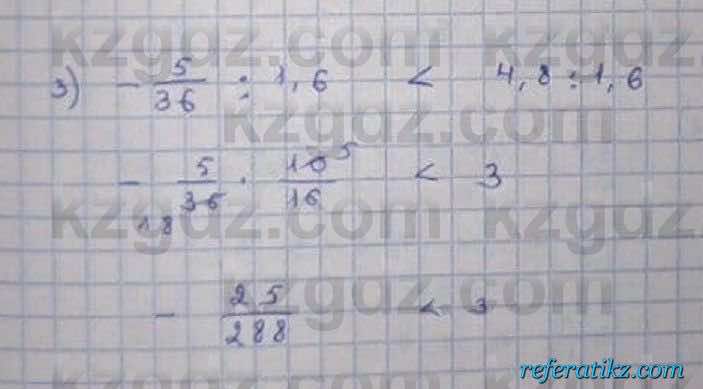 kzgdz.com kzgdz.com
3) - 5/36 : 1,6 < 4,8 : 1,6
kzgdz.com
- 5/36 · 10/16 < 3
18 5
kzgdz.com kzgdz.com
kzgdz.com
- 25/288 < 3
referatikz.com